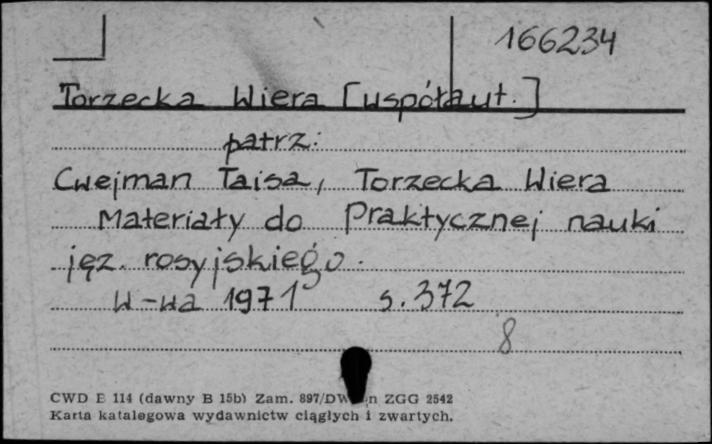 166234
Torzecka Wiera [współaut.]
patrz:
Cwejman Taisa, Torzecka Wiera
Materiały do Praktycznej nauki
jęz. rosyjskiego.
W-wa 1971 s. 372
8
CWD E 114 (dawny B 15b) Zam. 897/DW n ZGG 2542
Karta katalogowa wydawnictw ciągłych i zwartych.